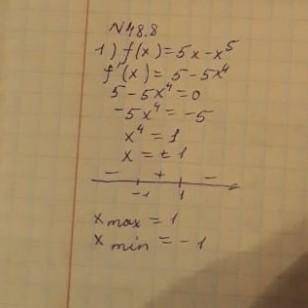 N48.8
1) f(x) = 5x - x⁵
f'(x) = 5 - 5x⁴
5 - 5x⁴ = 0
-5x⁴ = -5
x⁴ = 1
x = ± 1
- + -
-1 1
x max = 1
x min = -1